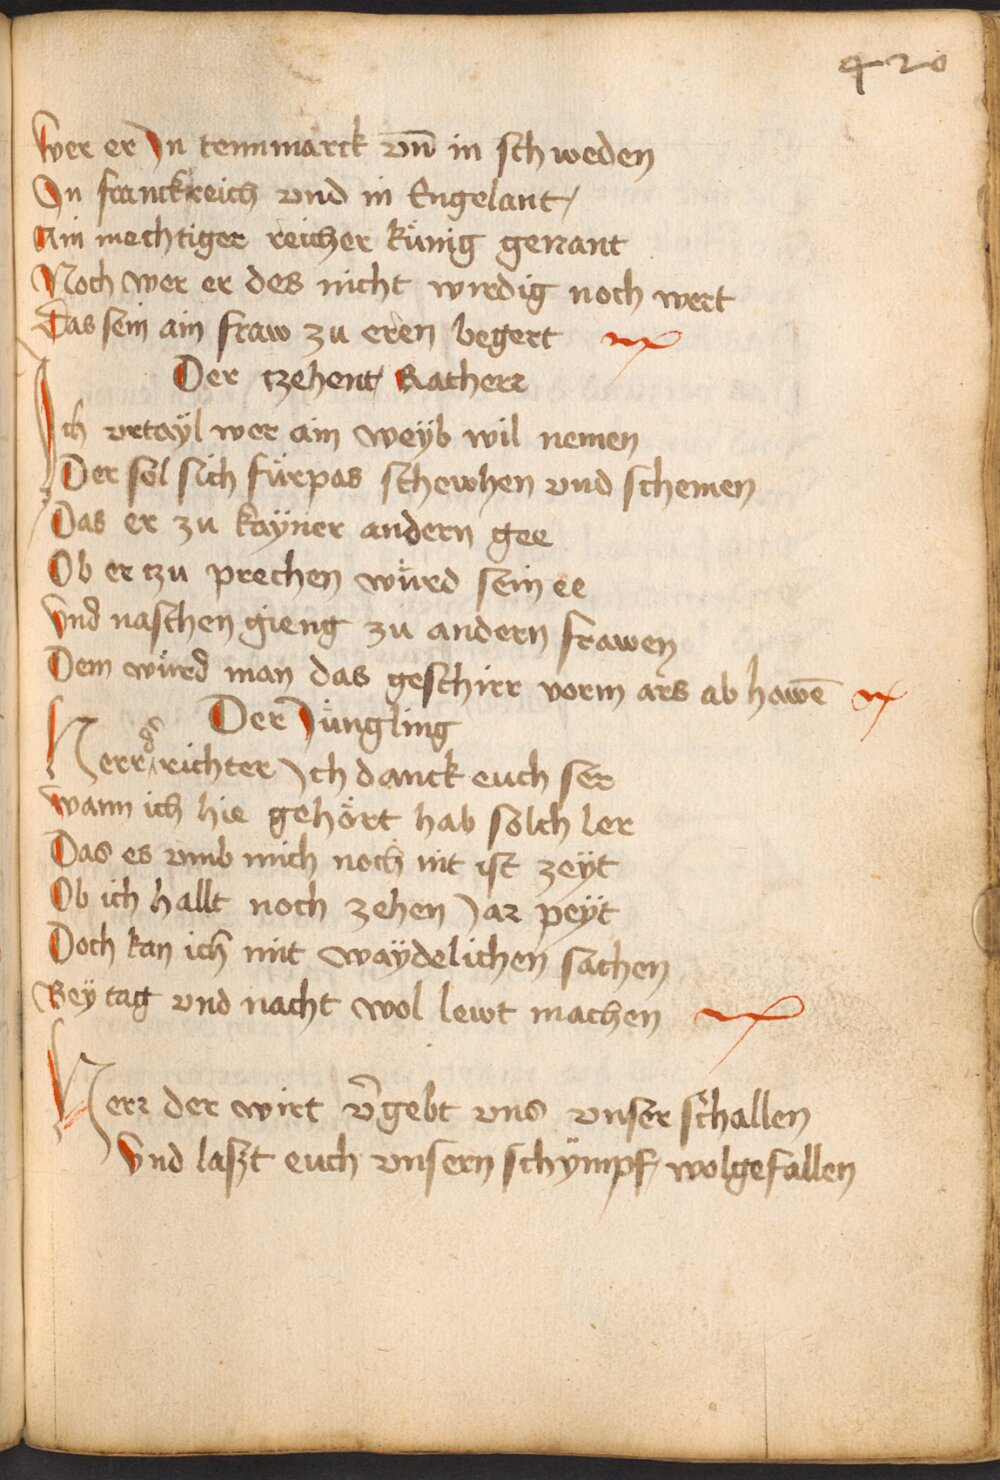 420
Wer er Jn tennmarck vn̄ in schweden
Jn franckreich vnd in Engelant
Ain mechtiger reicher künig genant
Noch wer er des nicht wirdig noch wert
Das sein ain fraw zu eren begert
Der tzehent Ratherr
Ich vrtayl wer ain weÿb wil nemen
Der sol sich fürpas schewhen vnd schemen
Das er zu kaÿner andern gee
Ob er tzu prechen würd sein ee
Vnd naschen gieng zu andern frawen
Dem würd man das geschirr vorm ars ab hawē
Der Jüngling
Herr d richter Jch danck euch ser
Wann ich hie gehört hab solch ler
Das es vmb mich noch nit ist zeÿt
Ob ich hallt noch zehen Jar peÿt
Doch kan ich mit waÿdelichen sachen
Beÿ tag vnd nacht wol lewt machen
Herr der wirt v̄gebt vns vnser schallen
Vnd laszt euch vnsern schÿmpf wolgefallen